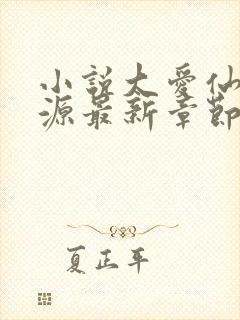 小說太愛仙
源最新章節
夏正平